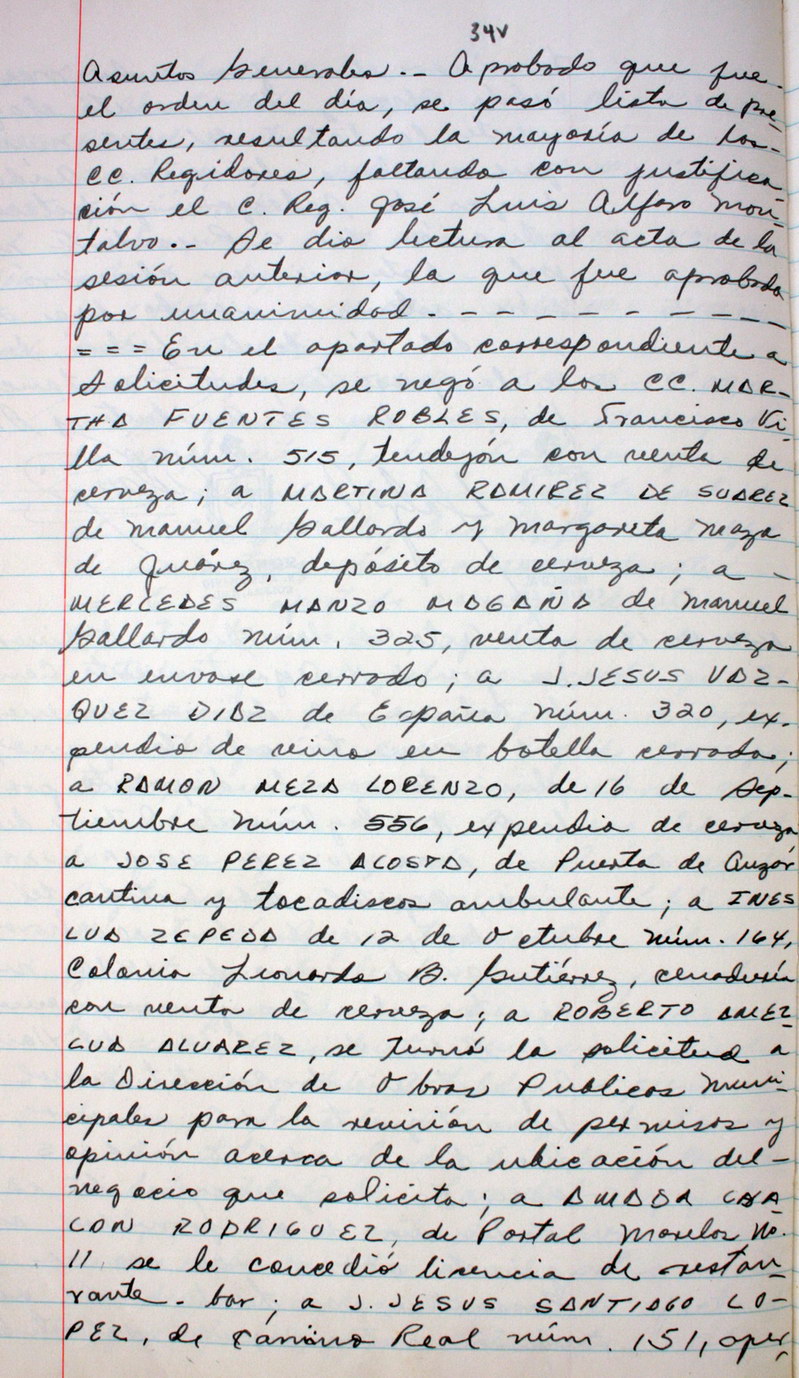 34v
Asuntos Generales.- Aprobado que fue-
el orden del día, se pasó lista de pre-
sentes, resultando la mayoría de los-
CC. Regidores, faltando con justifica-
ción el C. Reg. José Luis Alfaro Mon-
talvo.- Se dio lectura al acta de la
sesión anterior, la que fue aprobada
por unanimidad. - - - - - - - - - -
= = = En el apartado correspondiente a
Solicitudes, se negó a los CC. MAR-
THA FUENTES ROBLES, de Francisco Vi-
lla núm. 515, tendejón con venta de
cerveza; a MARTINA RAMIREZ DE SUAREZ
de Manuel Gallardo y Margarita Maza
de Juárez, depósito de cerveza; a -
MERCEDES MANZO MAGAÑA de Manuel
Gallardo núm. 325, venta de cerveza
en envase cerrado; a J.JESUS VAZ-
QUEZ DIAZ de España núm. 320, ex-
pendio de vino en botella cerrada;
a RAMON MEZA LORENZO, de 16 de Sep-
tiembre núm. 556, expendio de cerveza
a JOSE PEREZ ACOSTA, de Puerta de Anzar
cantina y tocadiscos ambulante; a INES
LUA ZEPEDA de 12 de Octubre núm. 164,
Colonia Leonardo B. Gutiérrez, cenaduría
con venta de cerveza; a ROBERTO AMEZ-
CUA ALVAREZ, se turnó la solicitud a
la Dirección de Obras Publicas Muni-
cipales para la revisión de permisos y
opinión acerca de la ubicación del-
negocio que solicita; a AMADOR CHA-
CON RODRIGUEZ, de Portal Morelos No.
11 se le concedió licencia de restau-
rante-bar; a J.JESUS SANTIAGO LO-
PEZ, de Camino Real núm. 151, oper,